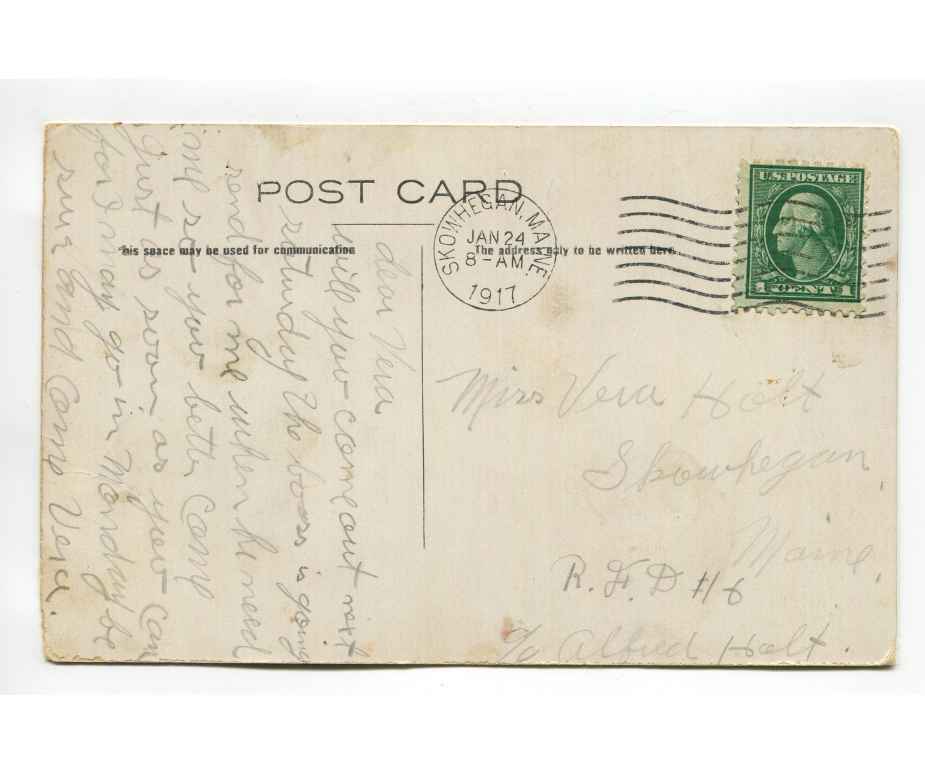 POST CARD
This space may be used for communication
The address only to be written here.
SKOWHEGAN, MAINE
JAN 24
8-AM
1917
U.S. POSTAGE
1 CENT 1
dear Vera
will you come out next
saturday the boss is going
send for me when he need
me so you better come
Just as soon as you can
for I may go in Monday be
sure and come Vera.
Miss Vera Holt
Skowhegan
Maine.
R. F. D #6
c/o Alfred Holt.